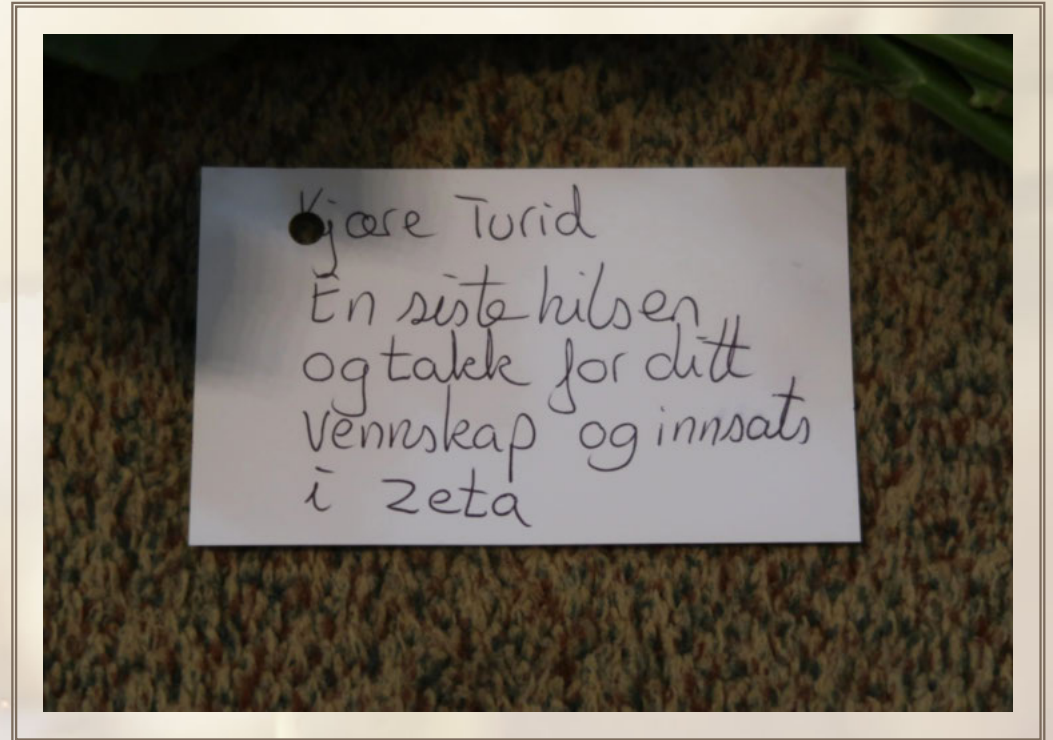 Kjære Turid
En siste hilsen
og takk for ditt
vennskap og innsats
i zeta